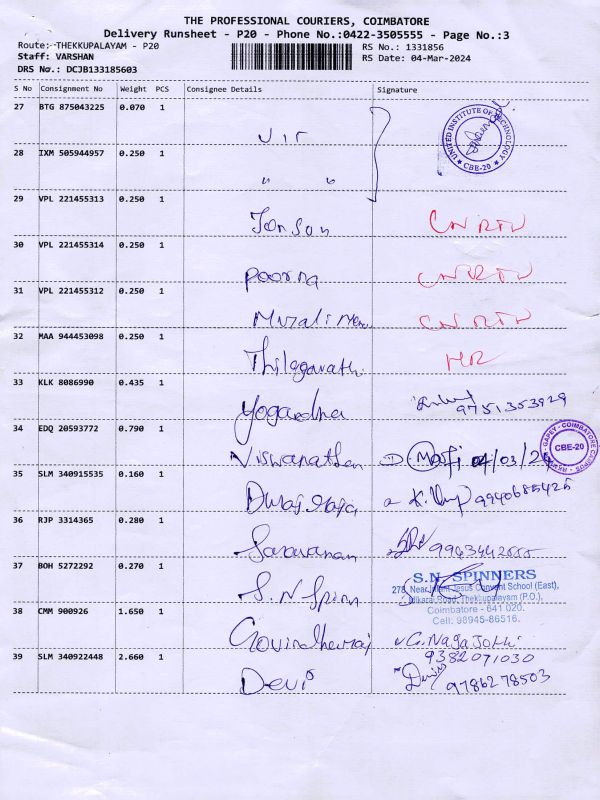 THE PROFESSIONAL COURIERS, COIMBATORE
Delivery Runsheet - P20 - Phone No.:0422-3505555 - Page No.:3
Route: THEKKUPALAYAM - P20 RS No.: 1331856
Staff: VARSHAN RS Date: 04-Mar-2024
DRS No.: DCJB133185603
S No Consignment No Weight PCS Consignee Details Signature
27 BTG 875043225 0.070 1
UIT
UNITED INSTITUTE OF TECHNOLOGY
CBE-20
28 IXM 505944957 0.250 1
" "
29 VPL 221455313 0.250 1
Jonson CN RTD
30 VPL 221455314 0.250 1
Poorna CN RTD
31 VPL 221455312 0.250 1
CN RTD
32 MAA 944453098 0.250 1
Thilagavathi
33 KLK 8086990 0.435 1
9751353929
34 EDQ 20593772 0.790 1
Viswanathan 04/03/24
CBE-20
35 SLM 340915535 0.160 1
9940685425
36 RJP 3314365 0.280 1
Saravanan
37 BOH 5272292 0.270 1
S.N Spinn
S.N. SPINNERS
278, Near Infant Jesus Convent School (East),
Idikarai Road, Thekkupalayam (P.O.),
Coimbatore - 641 020.
Cell: 98945-86516.
38 CMM 900926 1.650 1
Govindharaj G. Naga Jothi
9382071030
39 SLM 340922448 2.660 1
Devi 9786278503